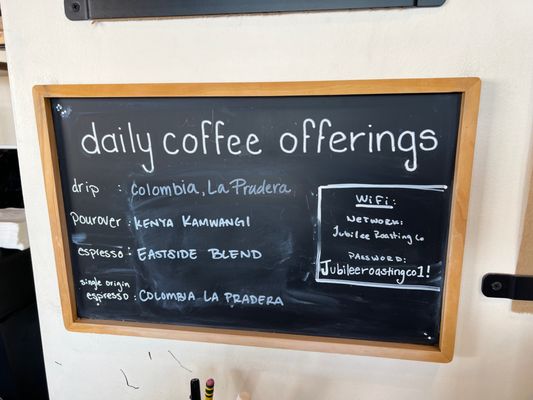 daily coffee offerings
drip : Colombia, La Pradera
pourover : KENYA KAMWANGI
espresso : EASTSIDE BLEND
single origin
espresso : COLOMBIA LA PRADERA
WIFI:
NETWORK:
Jubilee Roasting Co
PASSWORD:
Jubileeroastingco1!